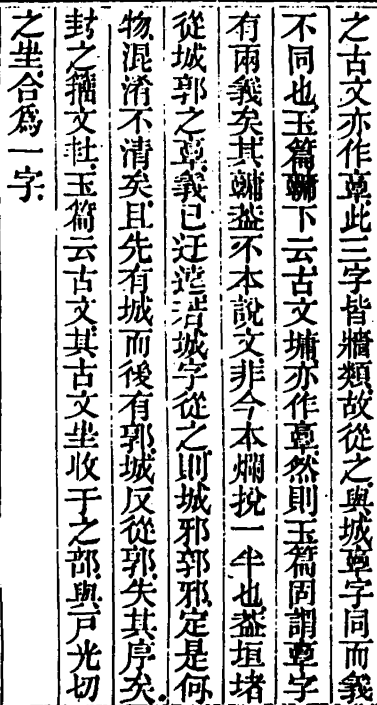 之古文亦作𩫖此三字皆牆類故從之與城𩫖字同而義
不同也玉篇下云古文墉亦作𩫖然則玉篇固謂𩫖字
有兩義矣其葢不本說文非今本爛挩一半也葢垣堵
從城郭之𩫖義已迂遠若城字從之則城邪郭邪定是何
物混淆不清矣且先有城而後有郭城反從郭失其序矣
封之籒文玉篇云古文其古文㞷收于之部與戶光切
之㞷合爲一字